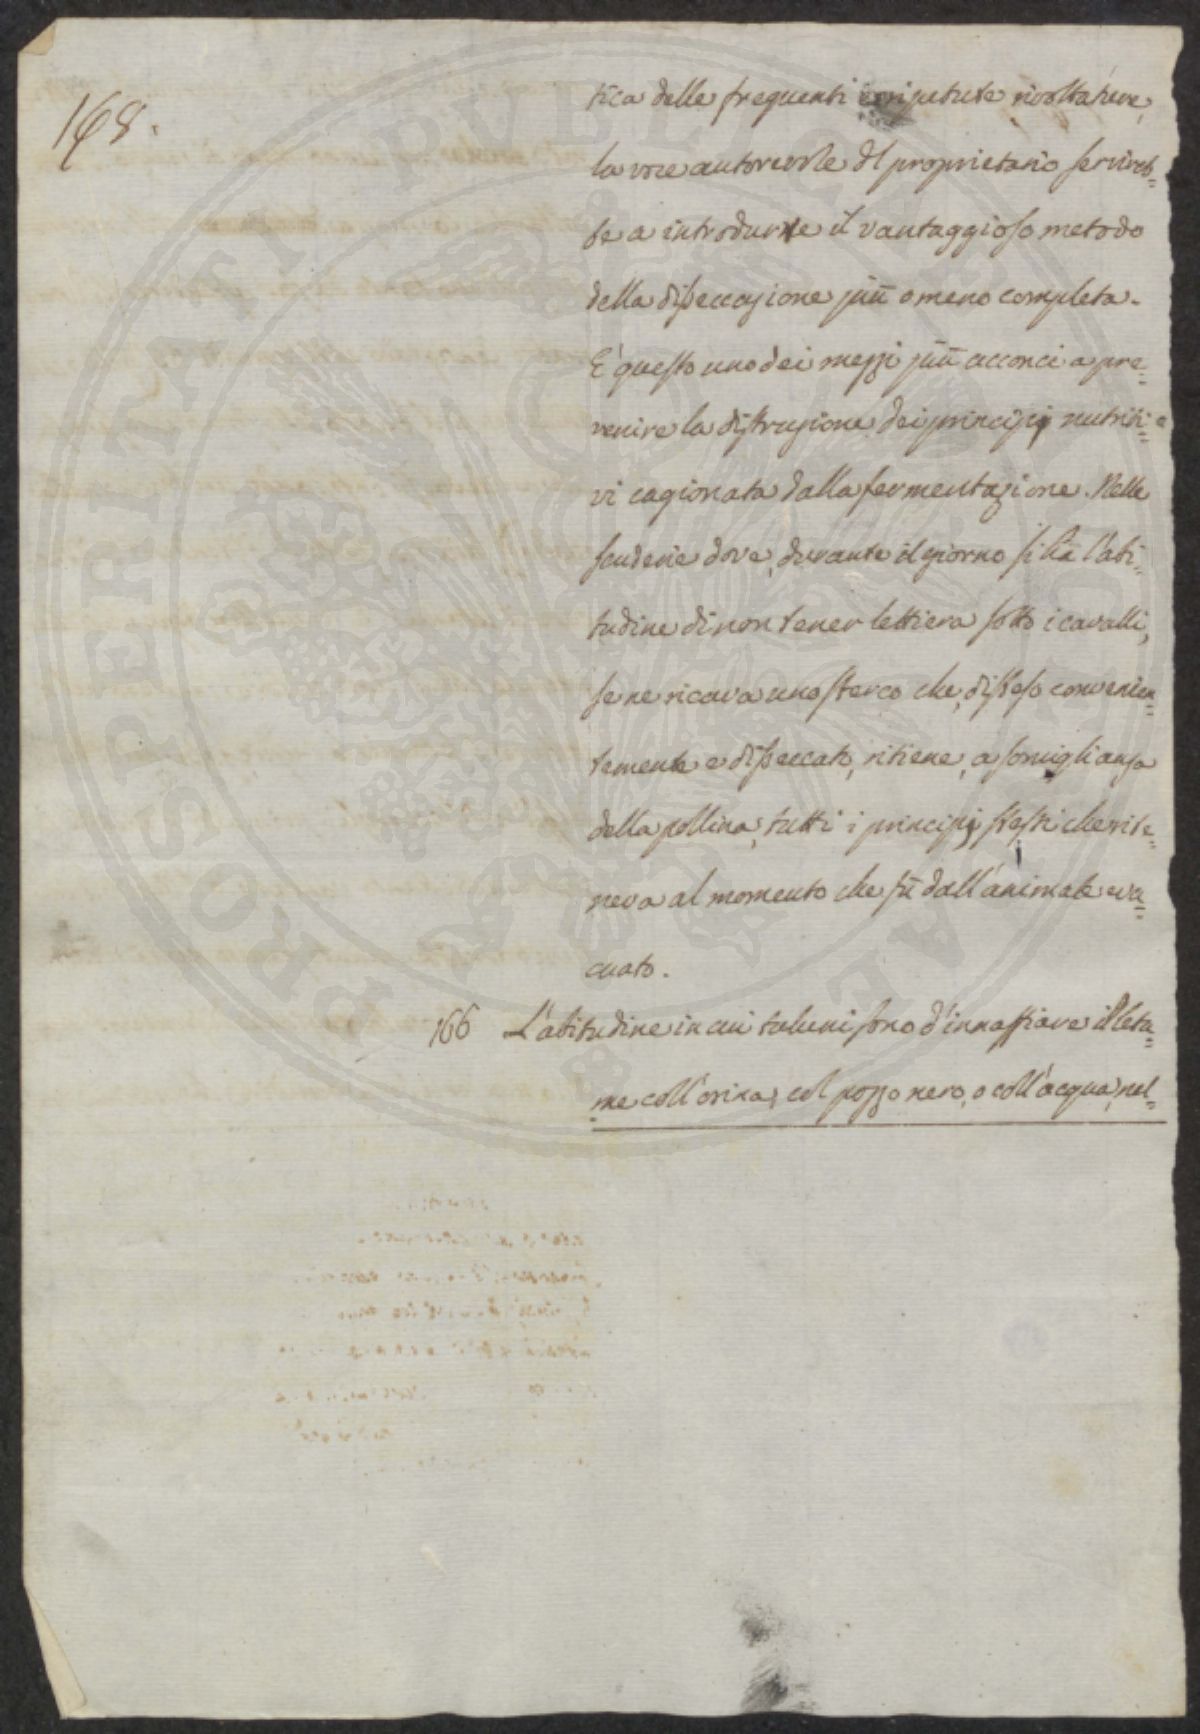 168.
tica delle frequenti e ripetute rivoltature,
la voce autorevole del proprietario servireb=
be a introdurre il vantaggioso metodo
della disseccazione più o meno completa.
È questo uno dei mezzi più acconci a pre=
venire la distruzione dei principj nutriti=
vi cagionata dalla fermentazione. Nelle
scuderie dove, durante il giorno si ha l'abi=
tudine di non tener lettiera sotto i cavalli,
se ne ricava uno sterco che, disteso convenien=
temente e disseccato, ritiene, a somiglianza
della pollina, tutti i principj stessi che rite=
neva al momento che fù dall'animale eva=
cuato.
166 L'abitudine in cui taluni sono d'innaffiare il leta=
me coll'orina, col pozzo nero, o coll'acqua, nel=
PROSPERITATI PVBLICAE AVGENDAE